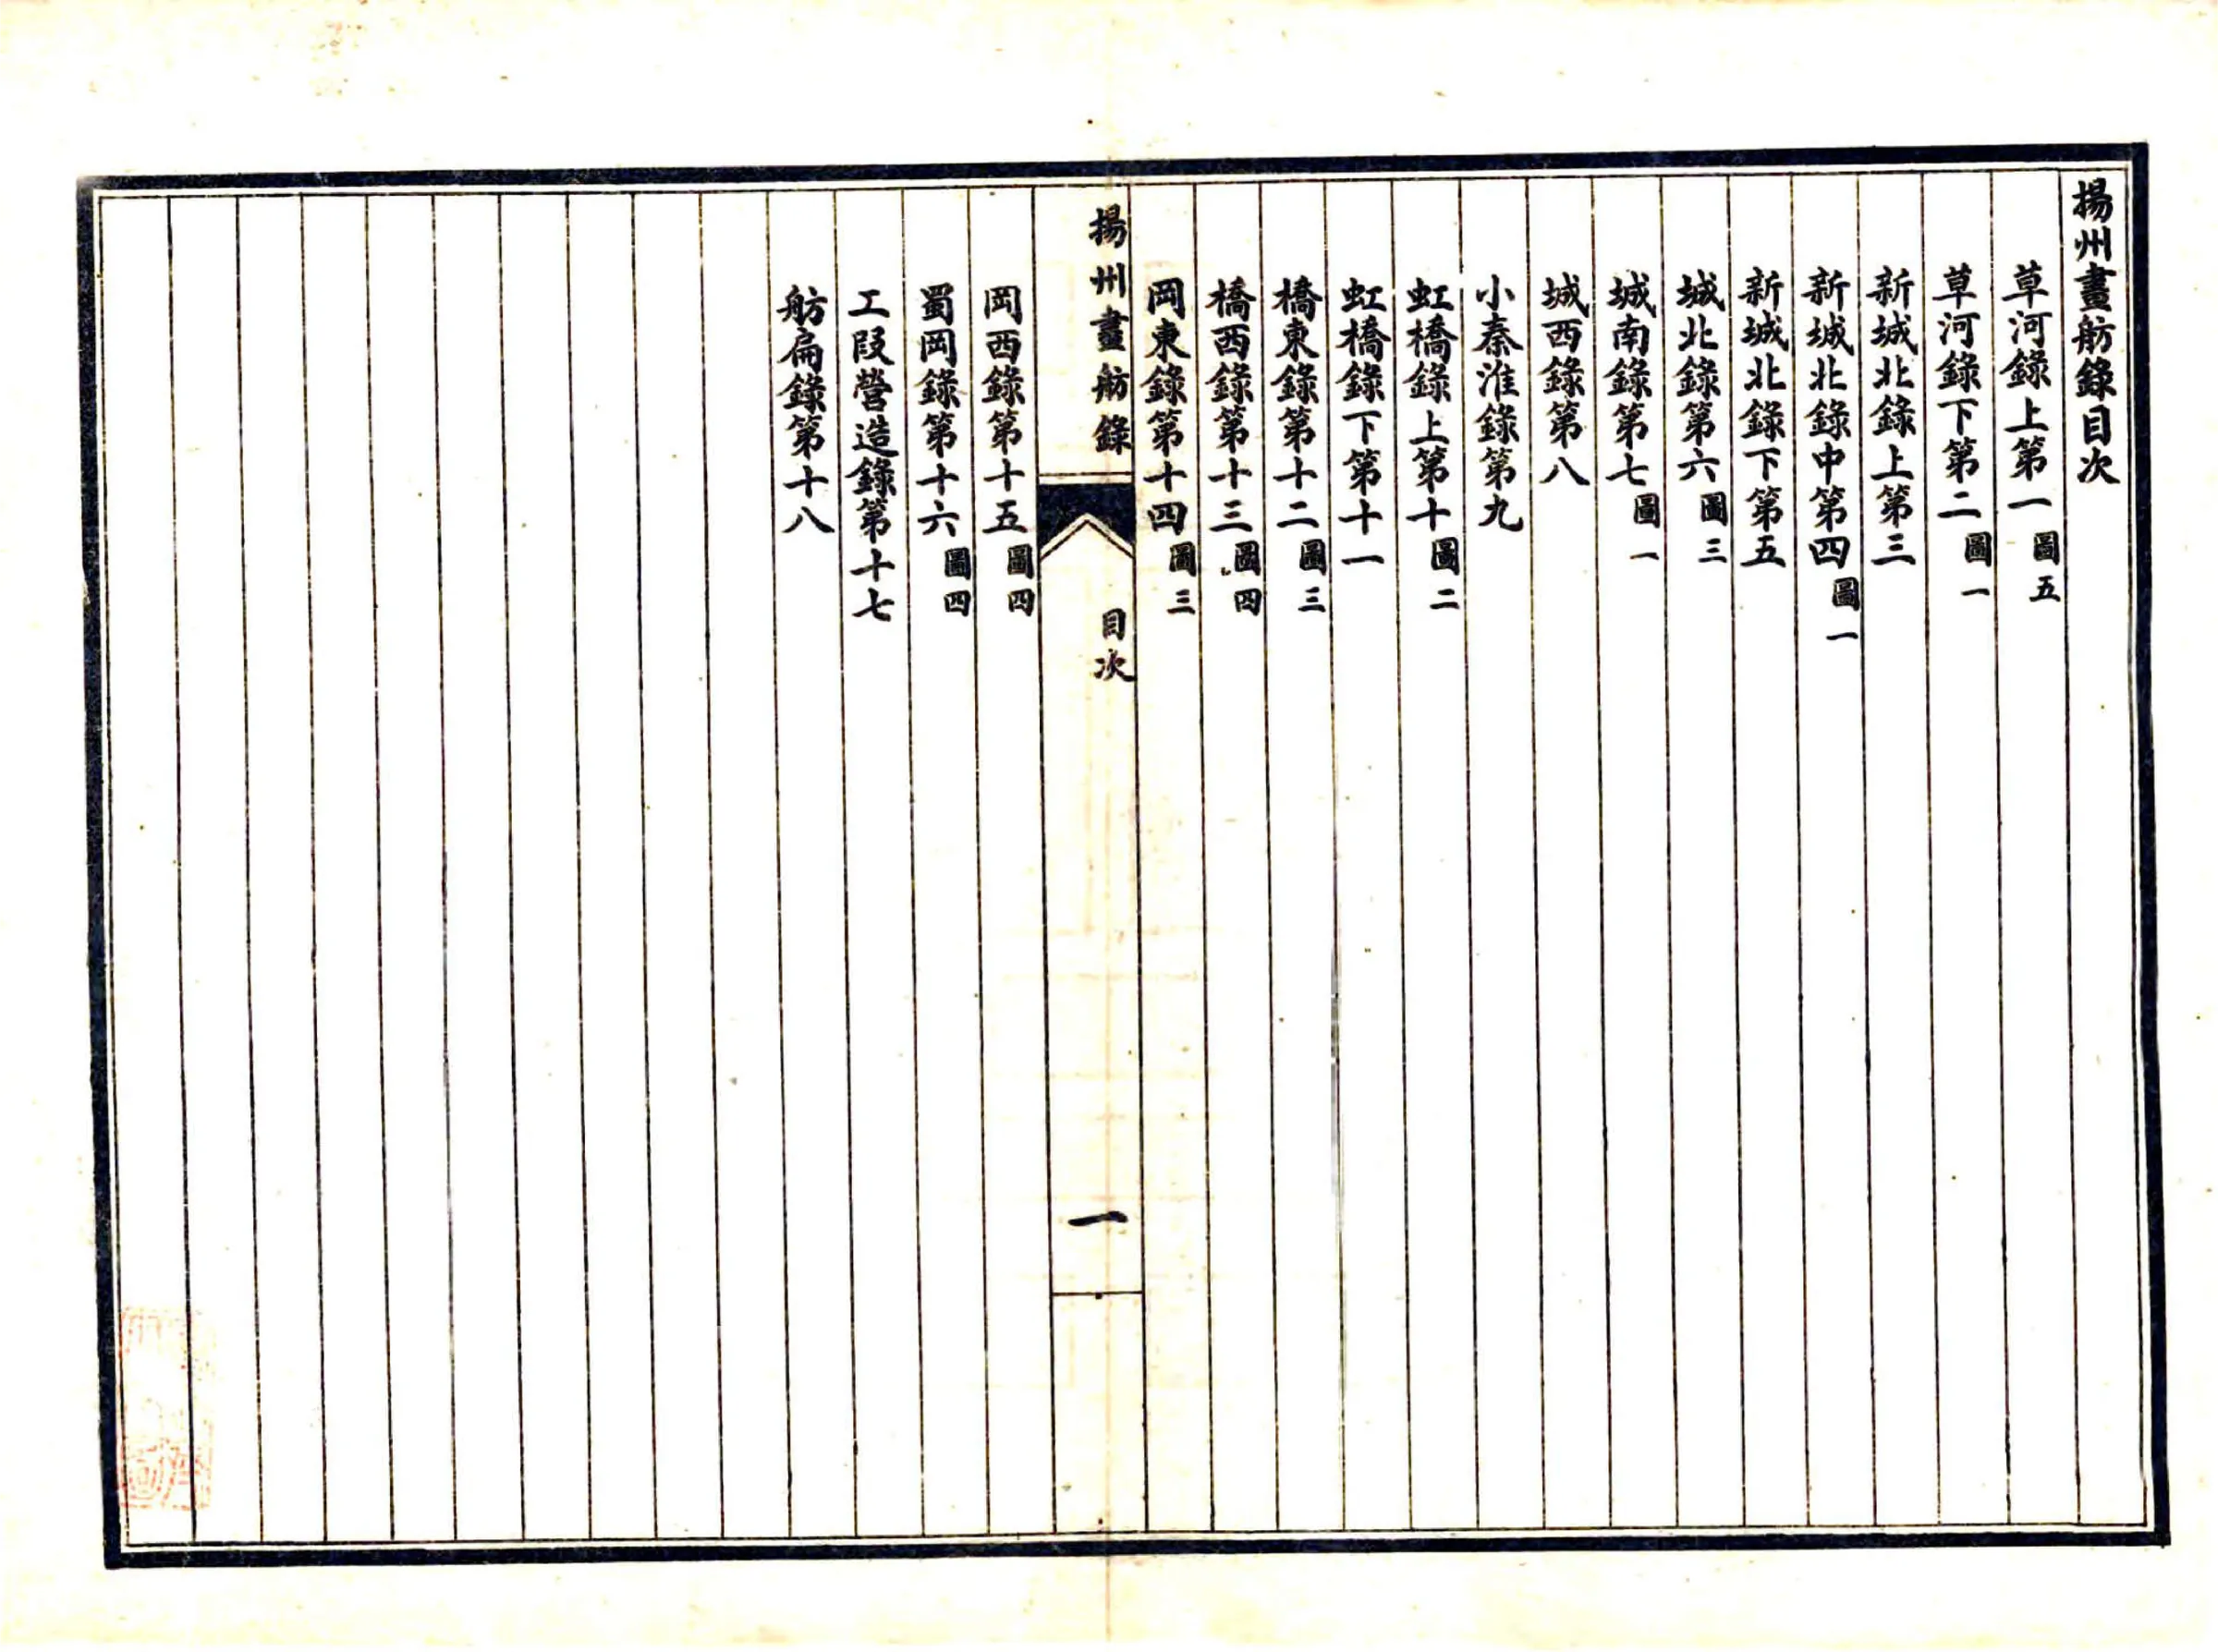 揚州畫舫錄目次
草河錄上第一圖五
草河錄下第二圖一
新城北錄上第三
新城北錄中第四圖一
新城北錄下第五
城北錄第六圖三
城南錄第七圖一
城西錄第八
小秦淮錄第九
虹橋錄上第十圖二
虹橋錄下第十一
橋東錄第十二圖三
橋西錄第十三圖四
岡東錄第十四圖三
揚州畫舫錄 目次 一
岡西錄第十五圖四
蜀岡錄第十六圖四
工段營造錄第十七
舫扁錄第十八